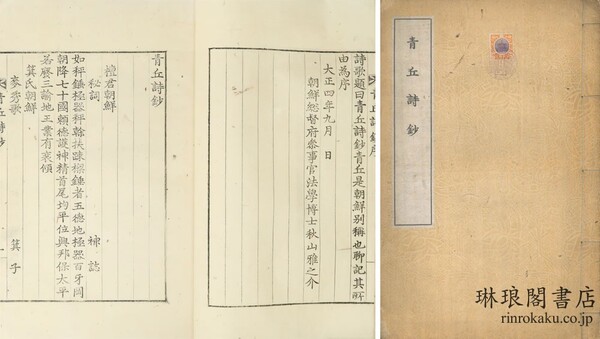 青丘詩鈔
詩歌題曰青丘詩鈔青丘是朝鮮別稱也聊記其所
由為序
大正四年九月 日
朝鮮總督府參事官法學博士秋山雅之介
青丘詩鈔
檀君朝鮮
秘詞 神誌
如秤錘極器秤幹扶踈樑錘者五德地極器百牙岡
朝降七十國賴德護神精首尾均平位興邦保太平
若廢三諭地王業有衰傾
箕氏朝鮮
麥秀歌 箕子
青丘詩鈔
琳琅閣書店
rinrokaku.co.jp